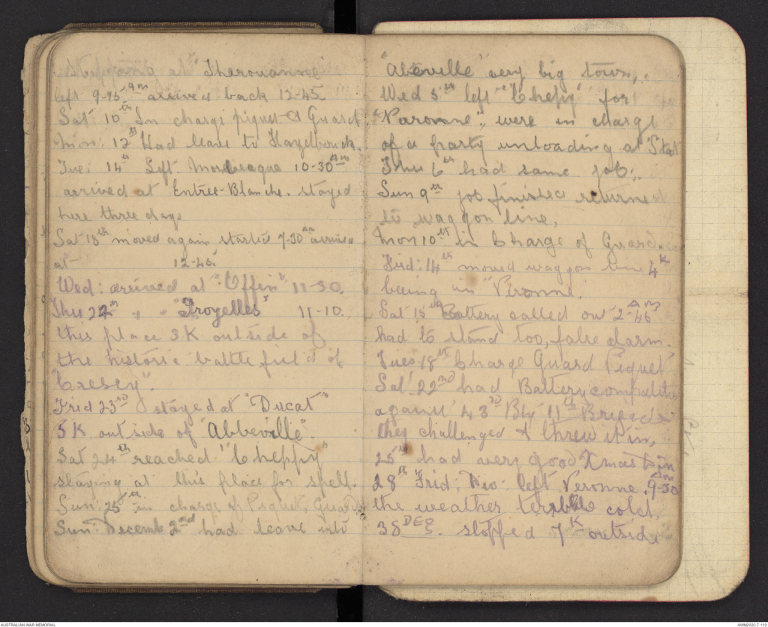 at "Therouanne
left 9-45 am arrived back 12-45.
Sat 10th In charge piquet & Guard
Mon: 12th Had leave to Hazebrouck.
Tues: 14th Left Morbecque 10-30 am
arrived at Entree-Blanche. stayed
here three days
Sat 18th moved again started 7-30 am arrived
at 12-45.
Wed: arrived at "Offin" 11-30.
Thus 22nd " " "Froyelles" 11-10.
this place 3K outside of
the historic battle field of
"Cresey".
Frid 23rd stayed at "Ducat"
5K out side of "Abbeville"
Sat 24th reached "Cheppy"
staying at this place for spell.
Sun: 25th in charge of Piquet, Guard
Sun: Decemb 2nd had leave into
"Abeville" very big town,
Wed 5th left "Chepy" for
"Paronne", were in charge
of a party unloading at Stat
Thus 6th had same job,
Sun 9th job finised returned
to waggon line,
Mon 10th in Charge of Guard
Frid: 14th moved waggon line 4K
being in Peronne.
Sat 15th Battery called out 2-45 am
had to stand too, false alarm.
Tues 18th Charge Guard Piquet
Sat 22nd had Battery
against 43rd Bty 11th Brigade
they challenged & threw it in,
25th had very good Xmas
28th Frid: left Peronne. 9-30 am
the weather terrible cold,
DEC. stopped 7K outside
AUSTRALIAN WAR MEMORIAL